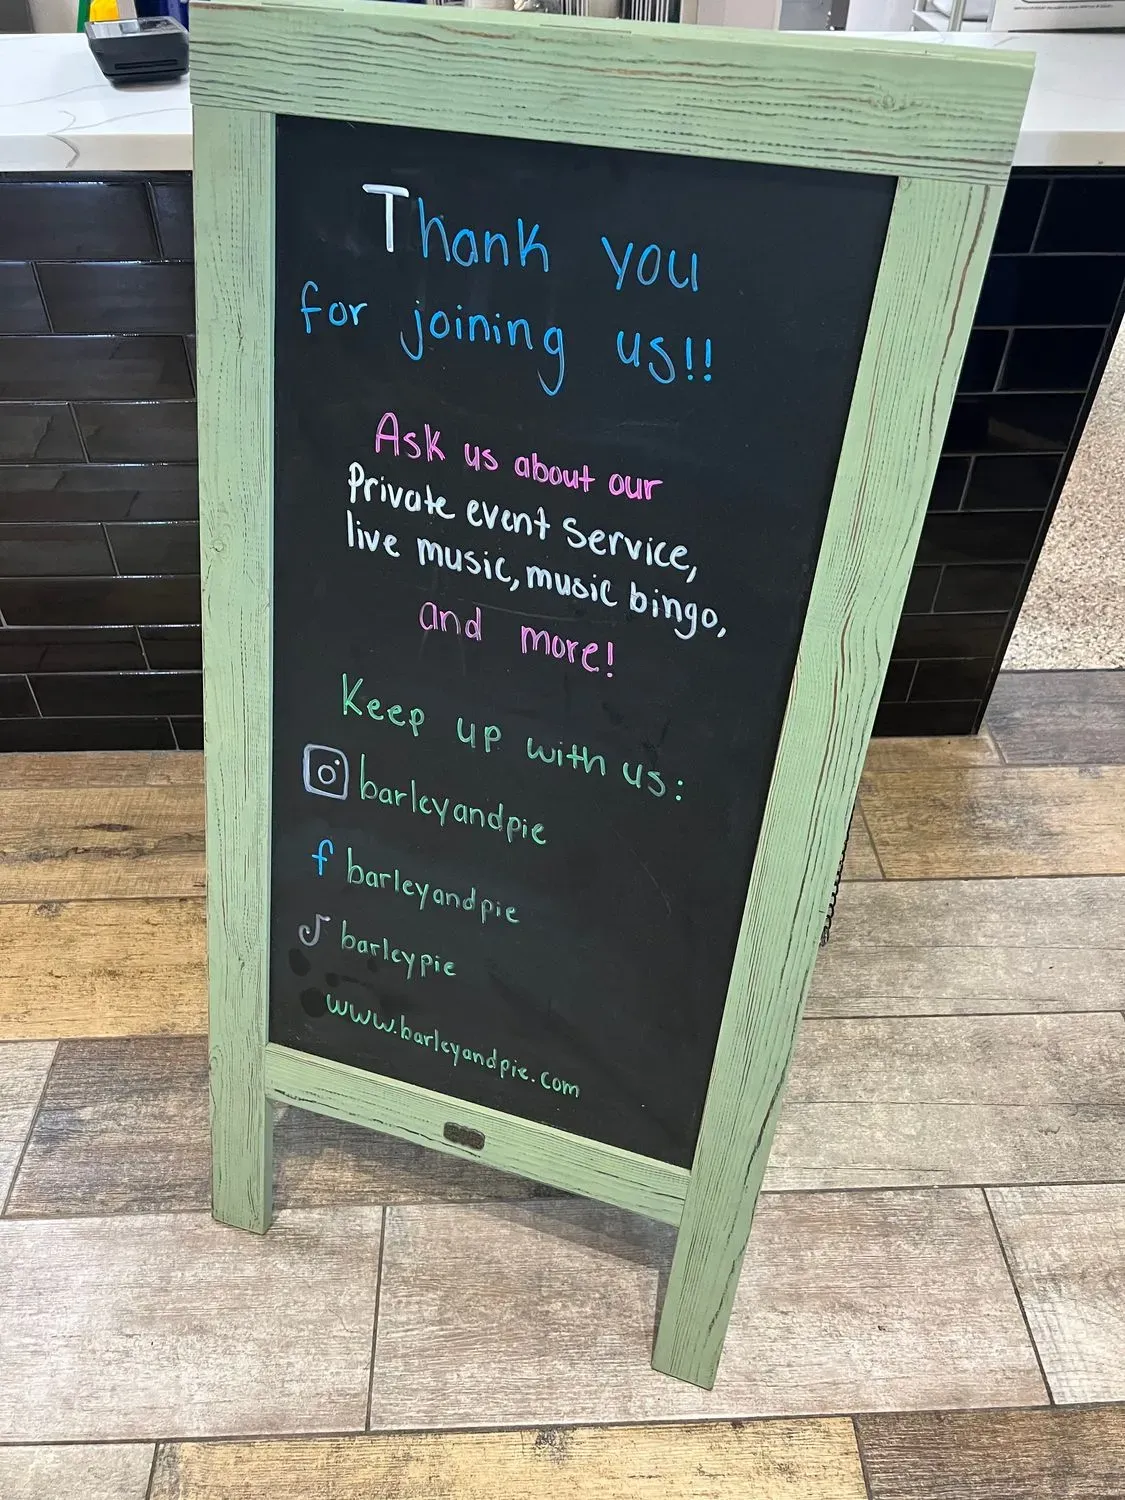 Thank you
for joining us!!
Ask us about our
Private event service,
live music, music bingo,
and more!
Keep up with us:
barleyandpie
f barleyandpie
barleypie
www.barleyandpie.com